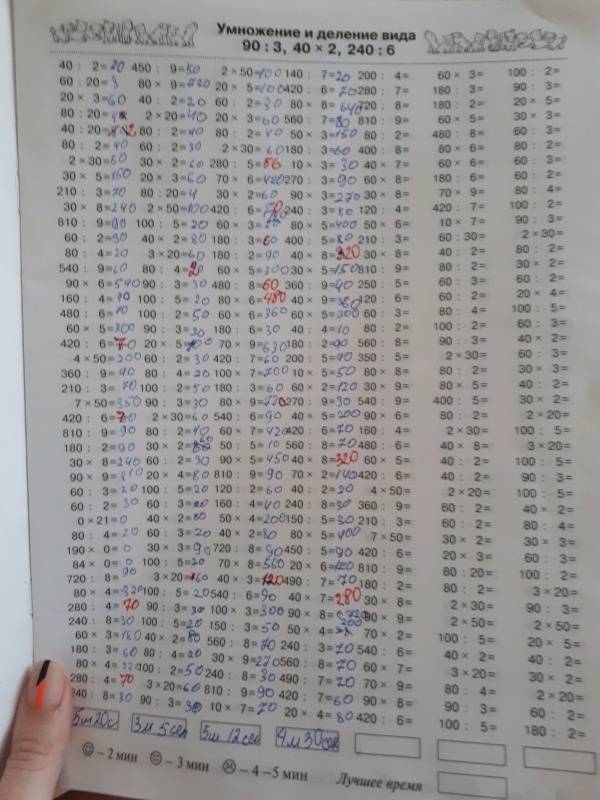 Умножение и деление вида
90 : 3, 40 × 2, 240 : 6
40 : 2=20 450 : 9=50 2 × 50=100 140 : 7=20 200 : 4= 60 × 3= 100 : 2=
60 : 20=3 80 × 9=720 20 × 5=100 420 : 6=70 280 : 7= 180 : 3= 90 : 3=
20 × 3=60 40 : 2=20 60 : 2=30 80 × 8=640 720 : 8= 180 : 2= 20 × 5=
80 : 20= 2 × 20=40 20 × 3=60 560 : 7=80 810 : 9= 60 × 5= 30 × 3=
40 : 20=2 80 : 2=40 80 : 2=40 50 × 3=150 80 : 2= 480 : 8= 60 : 3=
80 : 2=40 60 : 2=30 2 × 30=60 180 : 3=60 400 : 8= 80 × 6= 60 : 2=
2 × 30=60 30 × 2=60 280 : 5=56 10 × 3=30 40 × 7= 60 × 8= 60 : 3=
30 × 5=150 20 × 3=60 70 × 6=420 270 : 3=90 60 × 8= 180 : 6= 60 : 2=
210 : 3=70 80 : 20=4 30 × 2=60 90 × 3=270 30 × 8= 70 × 9= 80 : 4=
30 × 8=240 2 × 50=100 420 : 6=70 240 : 3=80 120 : 4= 420 : 7= 100 : 2=
810 : 9=90 100 : 5=20 60 × 3= 80 × 5=400 50 × 6= 10 × 7= 90 : 3=
60 : 2=30 40 × 2=80 180 : 3=60 400 : 5=80 210 : 3= 60 : 30= 2 × 30=
80 : 4=20 3 × 20=60 180 : 2=90 40 × 8=320 30 × 8= 40 : 2= 80 : 2=
540 : 9=60 80 : 4=20 60 × 5=300 30 × 5=150 810 : 9= 80 : 2= 30 × 2=
90 × 6=540 90 : 3=30 480 : 8=60 360 : 9=40 250 : 5= 60 : 3= 60 : 2=
160 : 4= 100 : 5=20 80 × 6=480 40 × 9=360 120 : 6= 60 : 2= 20 × 4=
480 : 6= 100 : 2=50 60 × 6=360 60 × 5=300 60 : 3= 80 : 4= 100 : 5=
60 × 5=300 90 : 3=30 180 : 6=30 40 : 4=10 80 : 2= 100 : 2= 60 : 3=
420 : 6=70 20 × 5=100 70 × 9=630 180 : 2=90 560 : 8= 90 : 3= 40 × 2=
4 × 50=200 60 : 2=30 420 : 7=60 200 : 5=40 350 : 5= 2 × 30= 60 : 3=
360 : 9=40 80 : 4=20 100 × 7=700 10 × 5=50 80 × 8= 80 : 2= 30 × 3=
210 : 3=70 100 : 2=50 180 : 3=60 60 × 2=120 30 × 9= 80 × 5= 40 : 2=
7 × 50=350 90 : 3=30 80 × 9=720 270 : 9=30 540 : 9= 400 : 5= 30 × 2=
420 : 6=70 2 × 30=60 540 : 6=90 40 × 5=200 90 × 6= 80 : 2= 2 × 20=
810 : 9=90 80 : 2=40 60 × 7=420 420 : 6=70 160 : 4= 2 × 30= 100 : 5=
180 : 2=90 30 × 2=60 50 : 5=10 560 : 8=70 480 : 6= 40 × 8= 3 × 20=
30 × 8=240 60 : 2=30 90 × 5=450 40 × 8=320 60 × 5= 40 : 2= 100 : 5=
90 × 9=810 20 × 4=80 810 : 9=90 70 × 2=140 420 : 6= 40 : 2= 90 : 3=
60 : 3=20 100 : 5=20 120 : 2=60 40 : 2=20 4 × 50= 2 × 20= 100 : 5=
60 : 2=30 60 : 3=20 160 : 4=40 240 : 8=30 360 : 9= 60 : 2= 40 × 2=
0 × 21=0 40 × 2=80 50 × 4=200 150 : 5=30 210 : 3= 60 : 2= 80 : 4=
80 : 4=20 60 : 3=20 40 × 2=80 80 × 5=400 7 × 50= 30 × 2= 30 × 3=
190 × 0=0 30 × 3=90 720 : 8=90 450 : 5=90 420 : 6= 20 × 3= 60 : 3=
84 × 0=0 100 : 5=20 70 × 8=560 20 × 6=120 810 : 9= 80 : 20= 100 : 5=
720 : 8=90 3 × 20=60 40 × 3=120 490 : 7=70 180 : 2= 100 : 2= 60 : 2=
80 × 4=320 100 : 5=20 540 : 6=90 40 × 7=280 30 × 8= 80 : 4= 3 × 20=
280 : 4=70 90 : 3=30 100 × 3=300 90 × 8=720 90 × 9= 2 × 30= 90 : 3=
240 : 8=30 100 : 5=20 150 : 3=50 50 × 4=200 70 × 2= 2 × 50= 2 × 50=
60 × 3= 40 × 2=80 560 : 8= 240 : 3= 540 : 6= 100 : 5= 20 × 5=
180 : 3=60 80 : 4=20 30 × 9=270 560 : 8=70 60 × 7= 40 × 2= 40 : 2=
80 × 4= 100 : 2=50 240 : 8=30 490 : 7=70 70 × 9= 3 × 20= 30 × 2=
280 : 4=70 3 × 20=60 810 : 9=90 420 : 7=60 90 × 8= 80 : 4= 2 × 20=
240 : 8=30 90 : 3=30 10 × 7=70 20 × 4=80 420 : 6= 60 : 2= 90 : 3=
100 : 5= 180 : 2=
5м20с 3м 5сек 5м 12сек 4м30сек
– 2 мин – 3 мин – 4 –5 мин Лучшее время